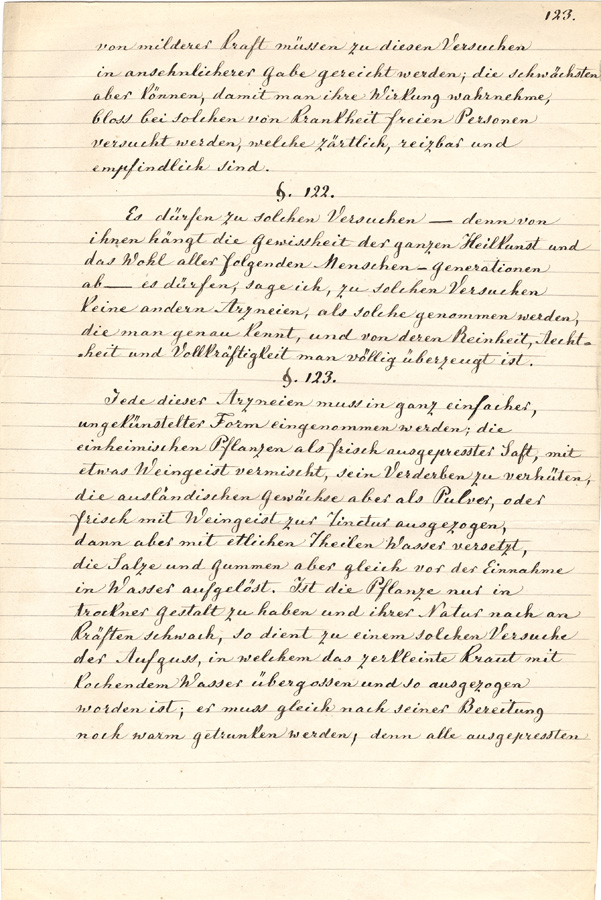 123.
von milderer Kraft müssen zu diesen Versuchen
in ansehnlicherer Gabe gereicht werden; die schwächsten
aber können, damit man ihre Wirkung wahrnehme,
bloss bei solchen von Krankheit freien Personen
versucht werden, welche zärtlich, reizbar und
empfindlich sind.
§. 122.
Es dürfen zu solchen Versuchen — denn von
ihnen hängt die Gewissheit der ganzen Heilkunst und
das Wohl aller folgenden Menschen-Generationen
ab — es dürfen, sage ich, zu solchen Versuchen
keine andern Arzneien, als solche genommen werden,
die man genau kennt, und von deren Reinheit, Aecht-
-heit und Vollkräftigkeit man völlig überzeugt ist.
§. 123.
Jede dieser Arzneien muss in ganz einfacher,
ungekünstelter Form eingenommen werden; die
einheimischen Pflanzen als frisch ausgepresster Saft, mit
etwas Weingeist vermischt, sein Verderben zu verhüten,
die ausländischen Gewächse aber als Pulver, oder
frisch mit Weingeist zur Tinctur ausgezogen,
dann aber mit etlichen Theilen Wasser versetzt,
die Salze und Gummen aber gleich vor der Einnahme
in Wasser aufgelöst. Ist die Pflanze nur in
trockner Gestalt zu haben und ihrer Natur nach an
Kräften schwach, so dient zu einem solchen Versuche
der Aufguss, in welchem das zerkleinte Kraut mit
kochendem Wasser übergossen und so ausgezogen
worden ist; er muss gleich nach seiner Bereitung
noch warm getrunken werden, denn alle ausgepressten